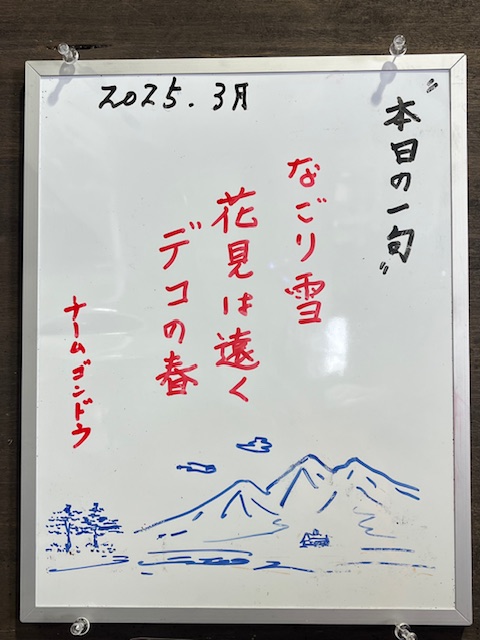 2025.3月
"本日の一句"
なごり雪
花見は遠く
デコの春
チームゴンドウ